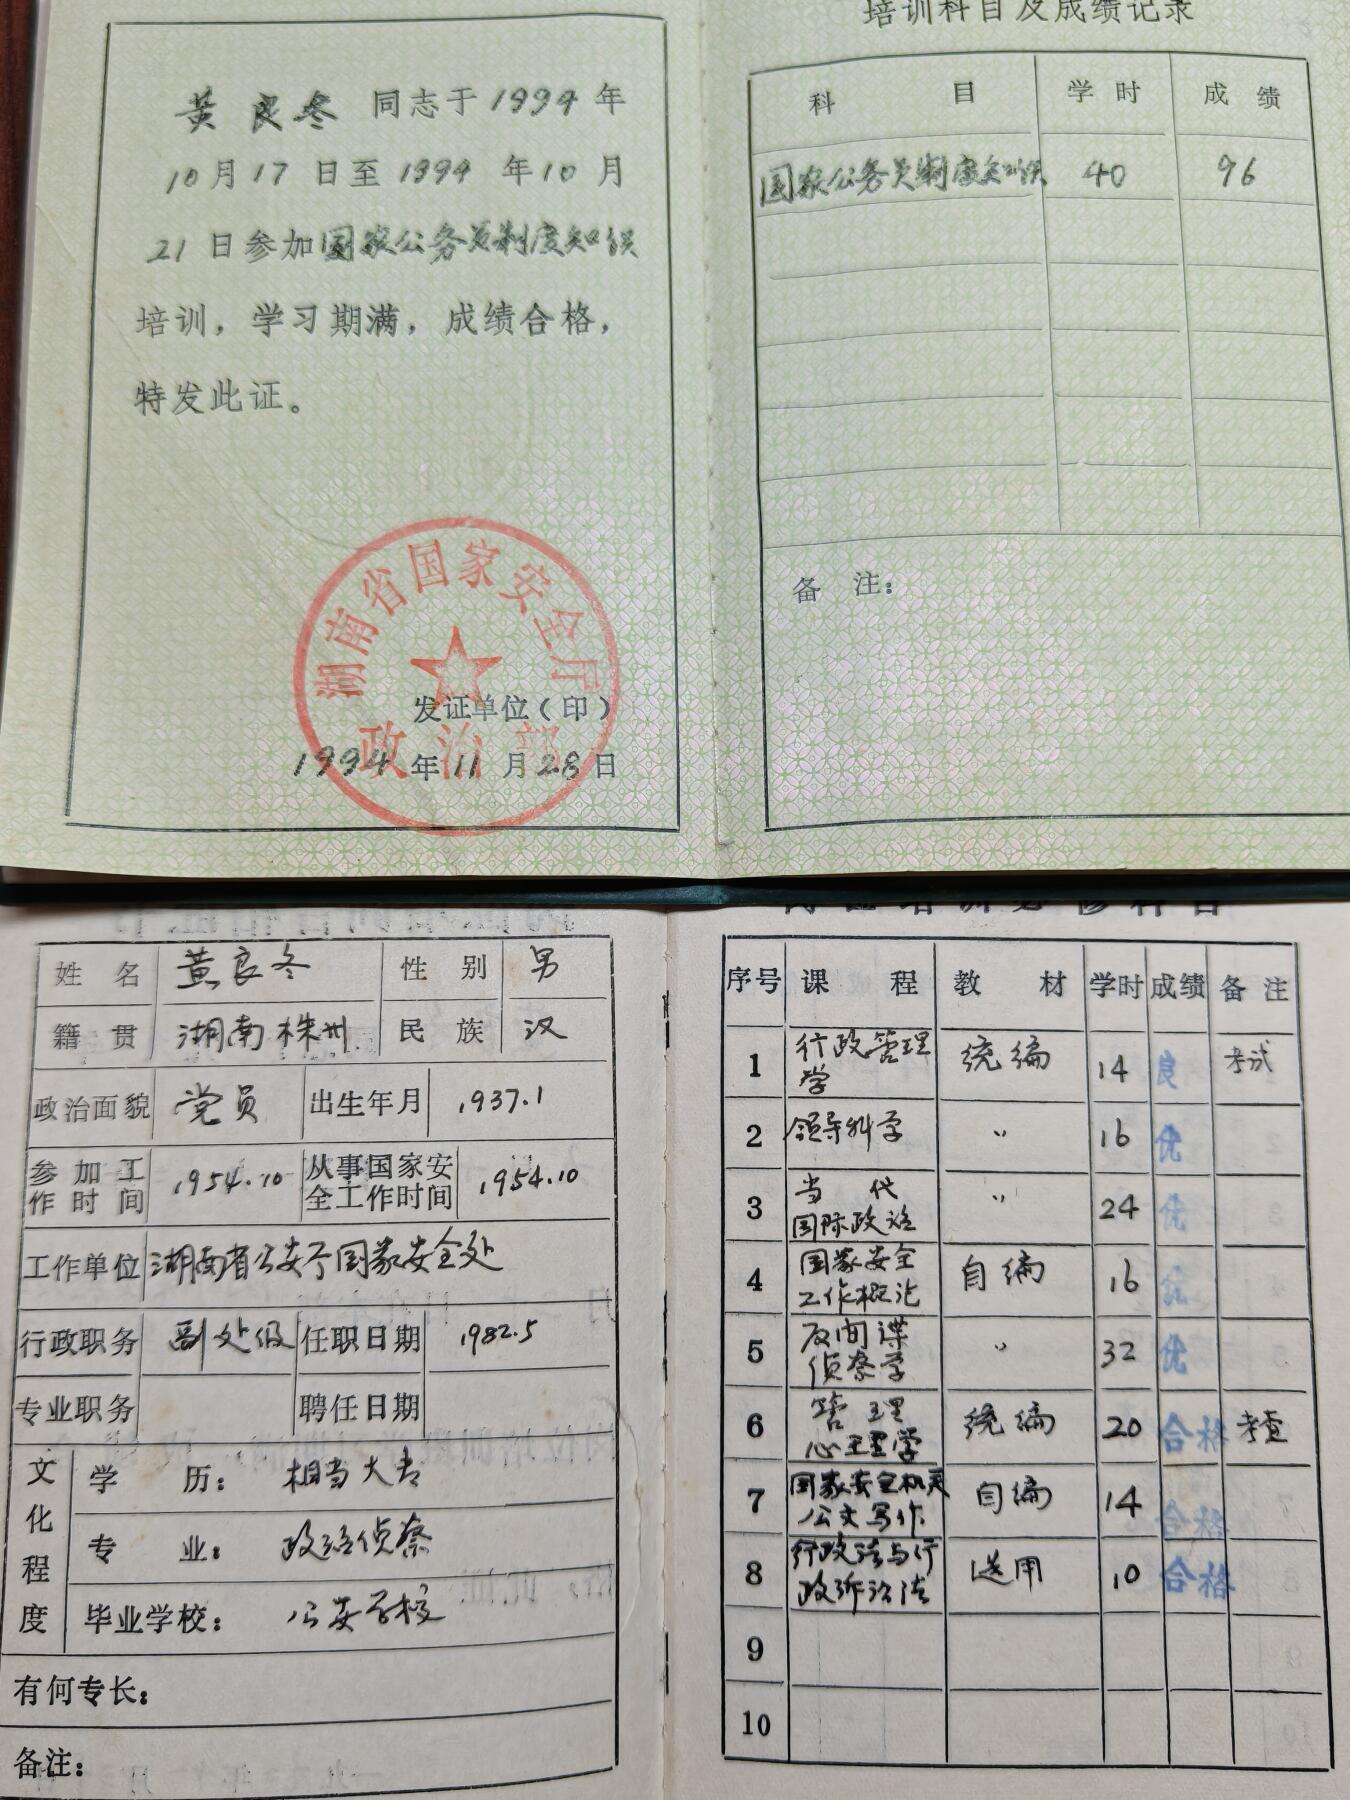 黄良冬 同志于1994年
10月17日至1994年10月
21日参加国家公务员制度知识
培训，学习期满，成绩合格，
特发此证。
湖南省国家安全厅
政治部
发证单位（印）
1994年11月28日
培训科目及成绩记录
科 目 学时 成绩
国家公务员制度知识 40 96
备 注：
姓 名 黄良冬 性 别 男
籍 贯 湖南株州 民 族 汉
政治面貌 党员 出生年月 1937.1
参加工作时间 1954.10 从事国家安全工作时间 1954.10
工作单位 湖南省公安厅国家安全处
行政职务 副处级 任职日期 1982.5
专业职务 聘任日期
文化程度
学 历： 相当大专
专 业： 政治侦察
毕业学校： 公安学校
有何专长：
备注：
岗位培训必修科目
序号 课 程 教 材 学时 成绩 备 注
1 行政管理学 统编 14 良 考试
2 领导科学 〃 16 优
3 当代国际政治 〃 24 优
4 国家安全工作概论 自编 16 优
5 反间谍侦察学 〃 32 优
6 管理心理学 统编 20 合格 考查
7 国家安全机关公文写作 自编 14 合格
8 行政法与行政诉讼法 选用 10 合格
9
10